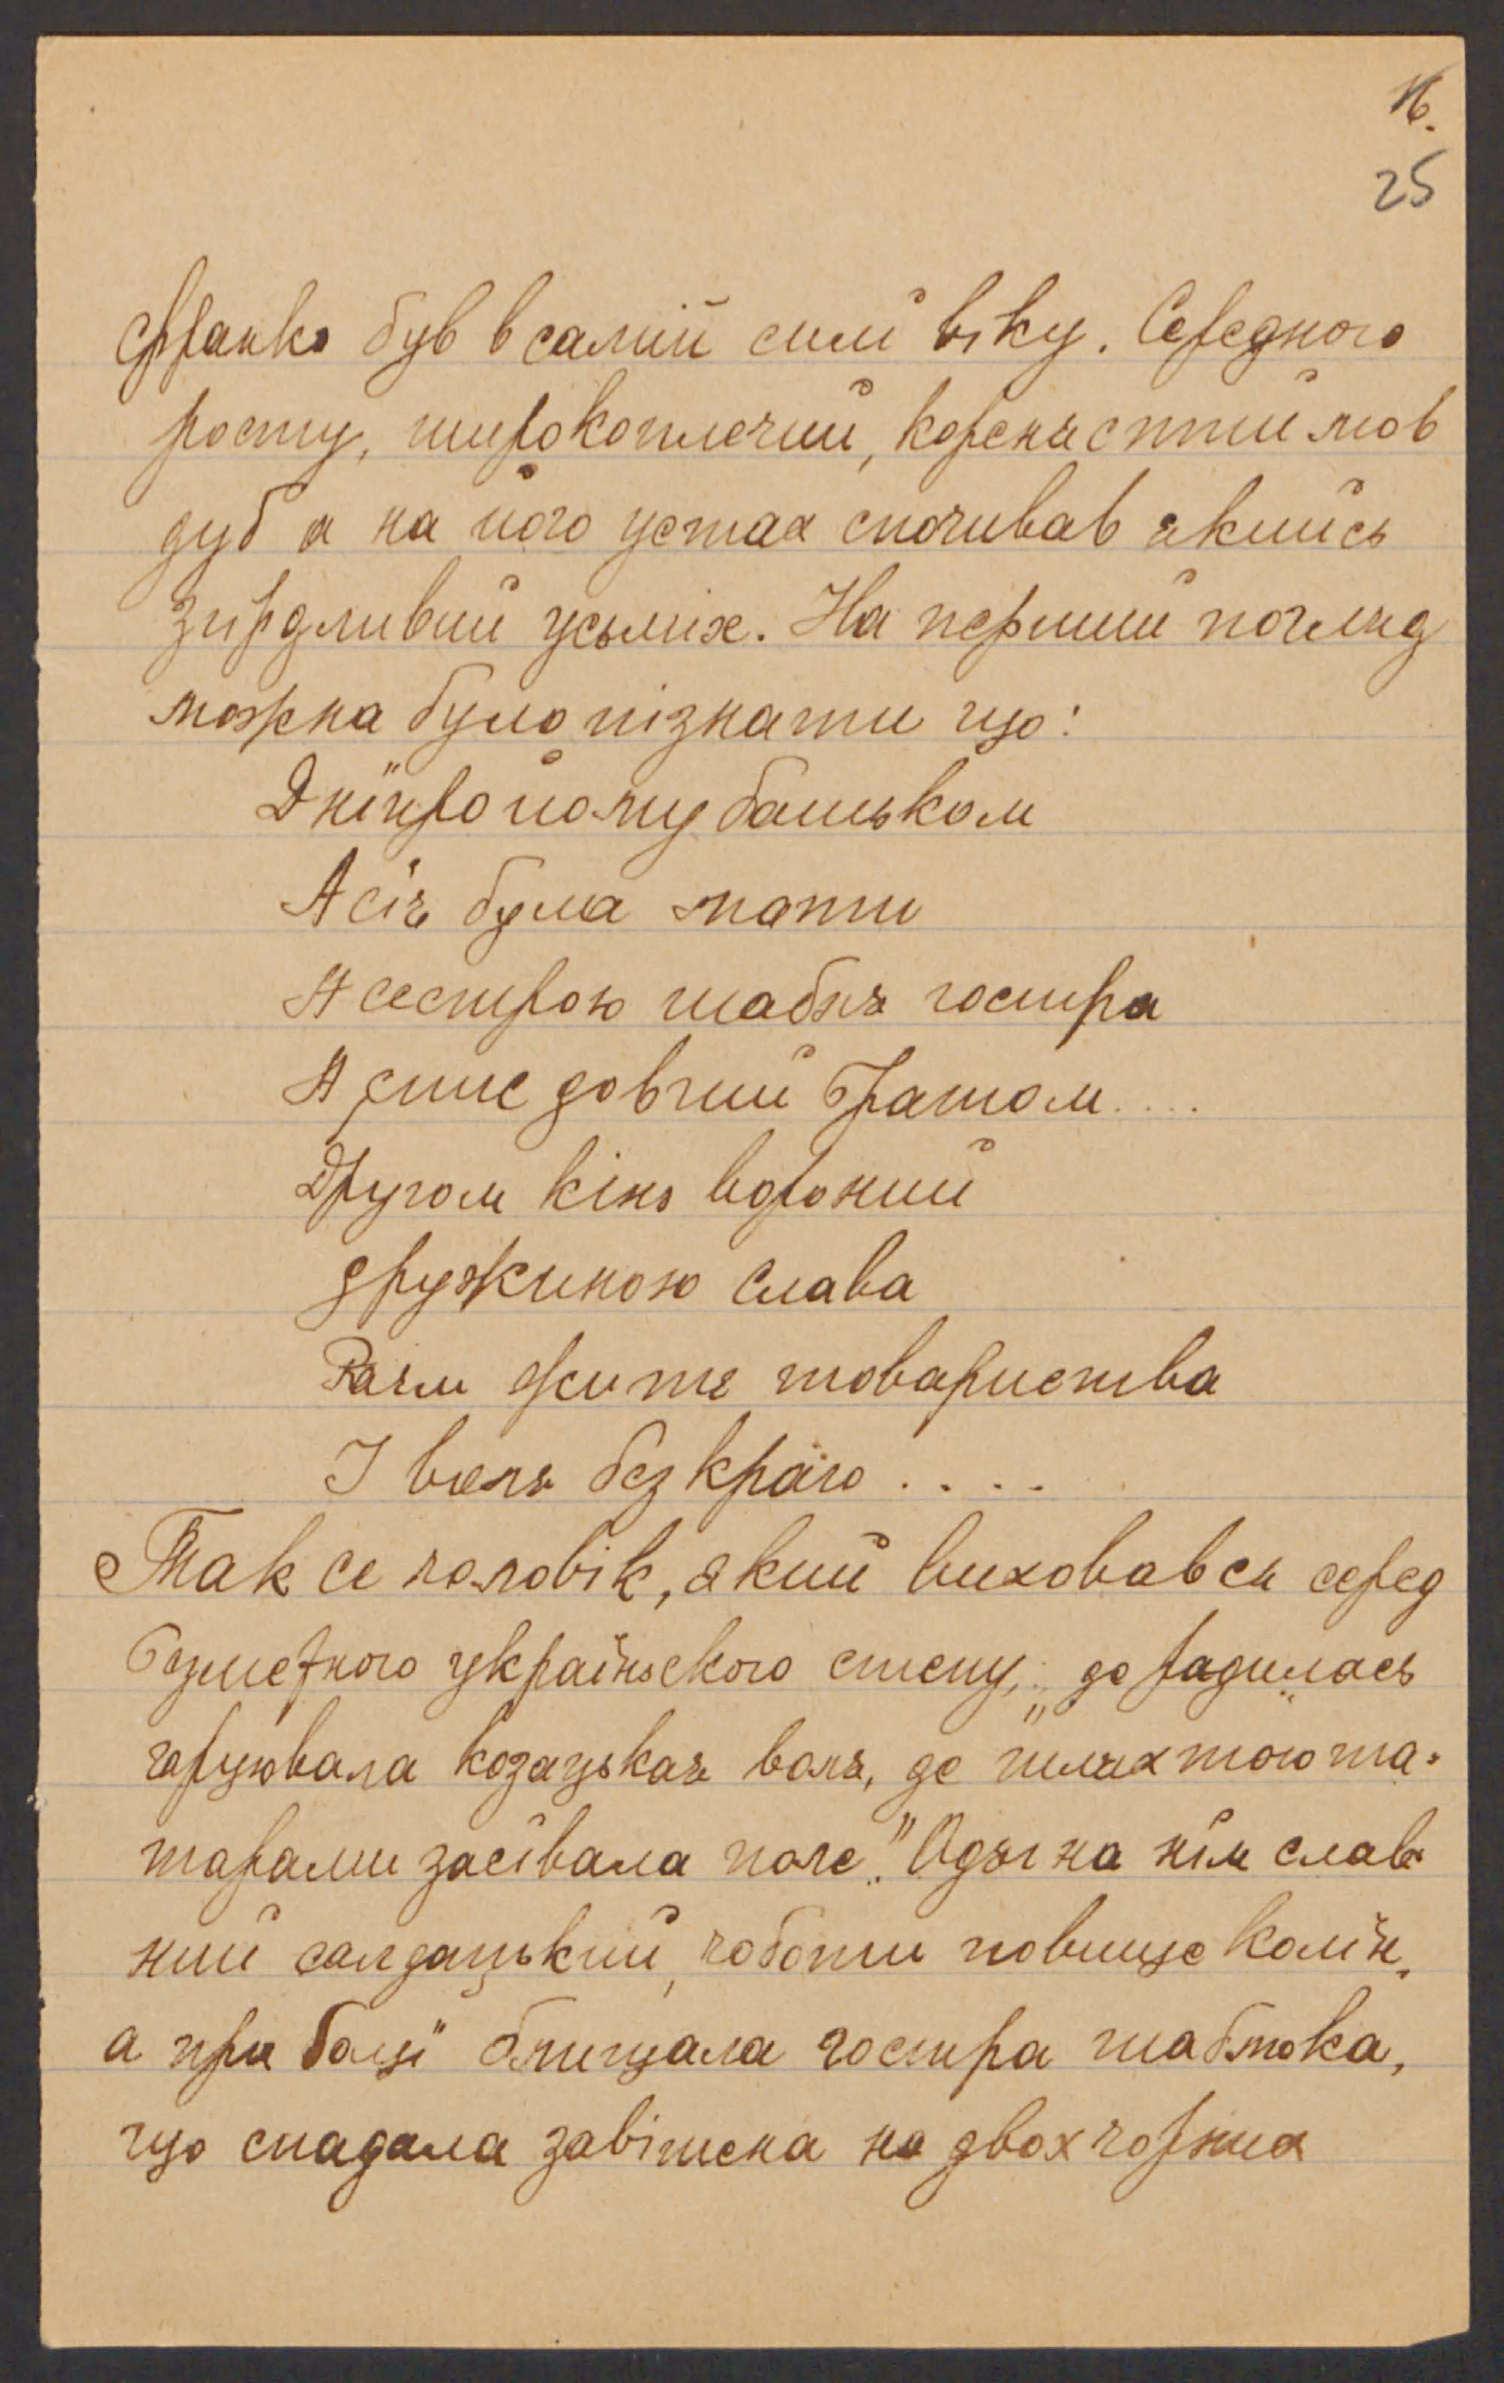 16.
25
Франко був в самій силї віку. Середного
росту, широкоплечий, коренястий мов
дуб а на його устах спочивав якийсь
згірдливий усьміх. На перший погляд
можна було пізнати що:
Днїпро йому батьком
А сїч була мати
А сестрою шабля гостра
А спис довгий братом....
Другом кінь вороний
дружиною слава
житє товариства
І воля без краю....
Так се чоловік, який виховався серед
безмежного україньского степу, „де родилась
гарцювала козацькая воля, де шляхтою та-
тарами засївала поле." Одяг на нїм слав
ний салдацький, чоботи повище колїн,
а при боцї блищала гостра шаблюка,
що спадала завішена на двох чорних